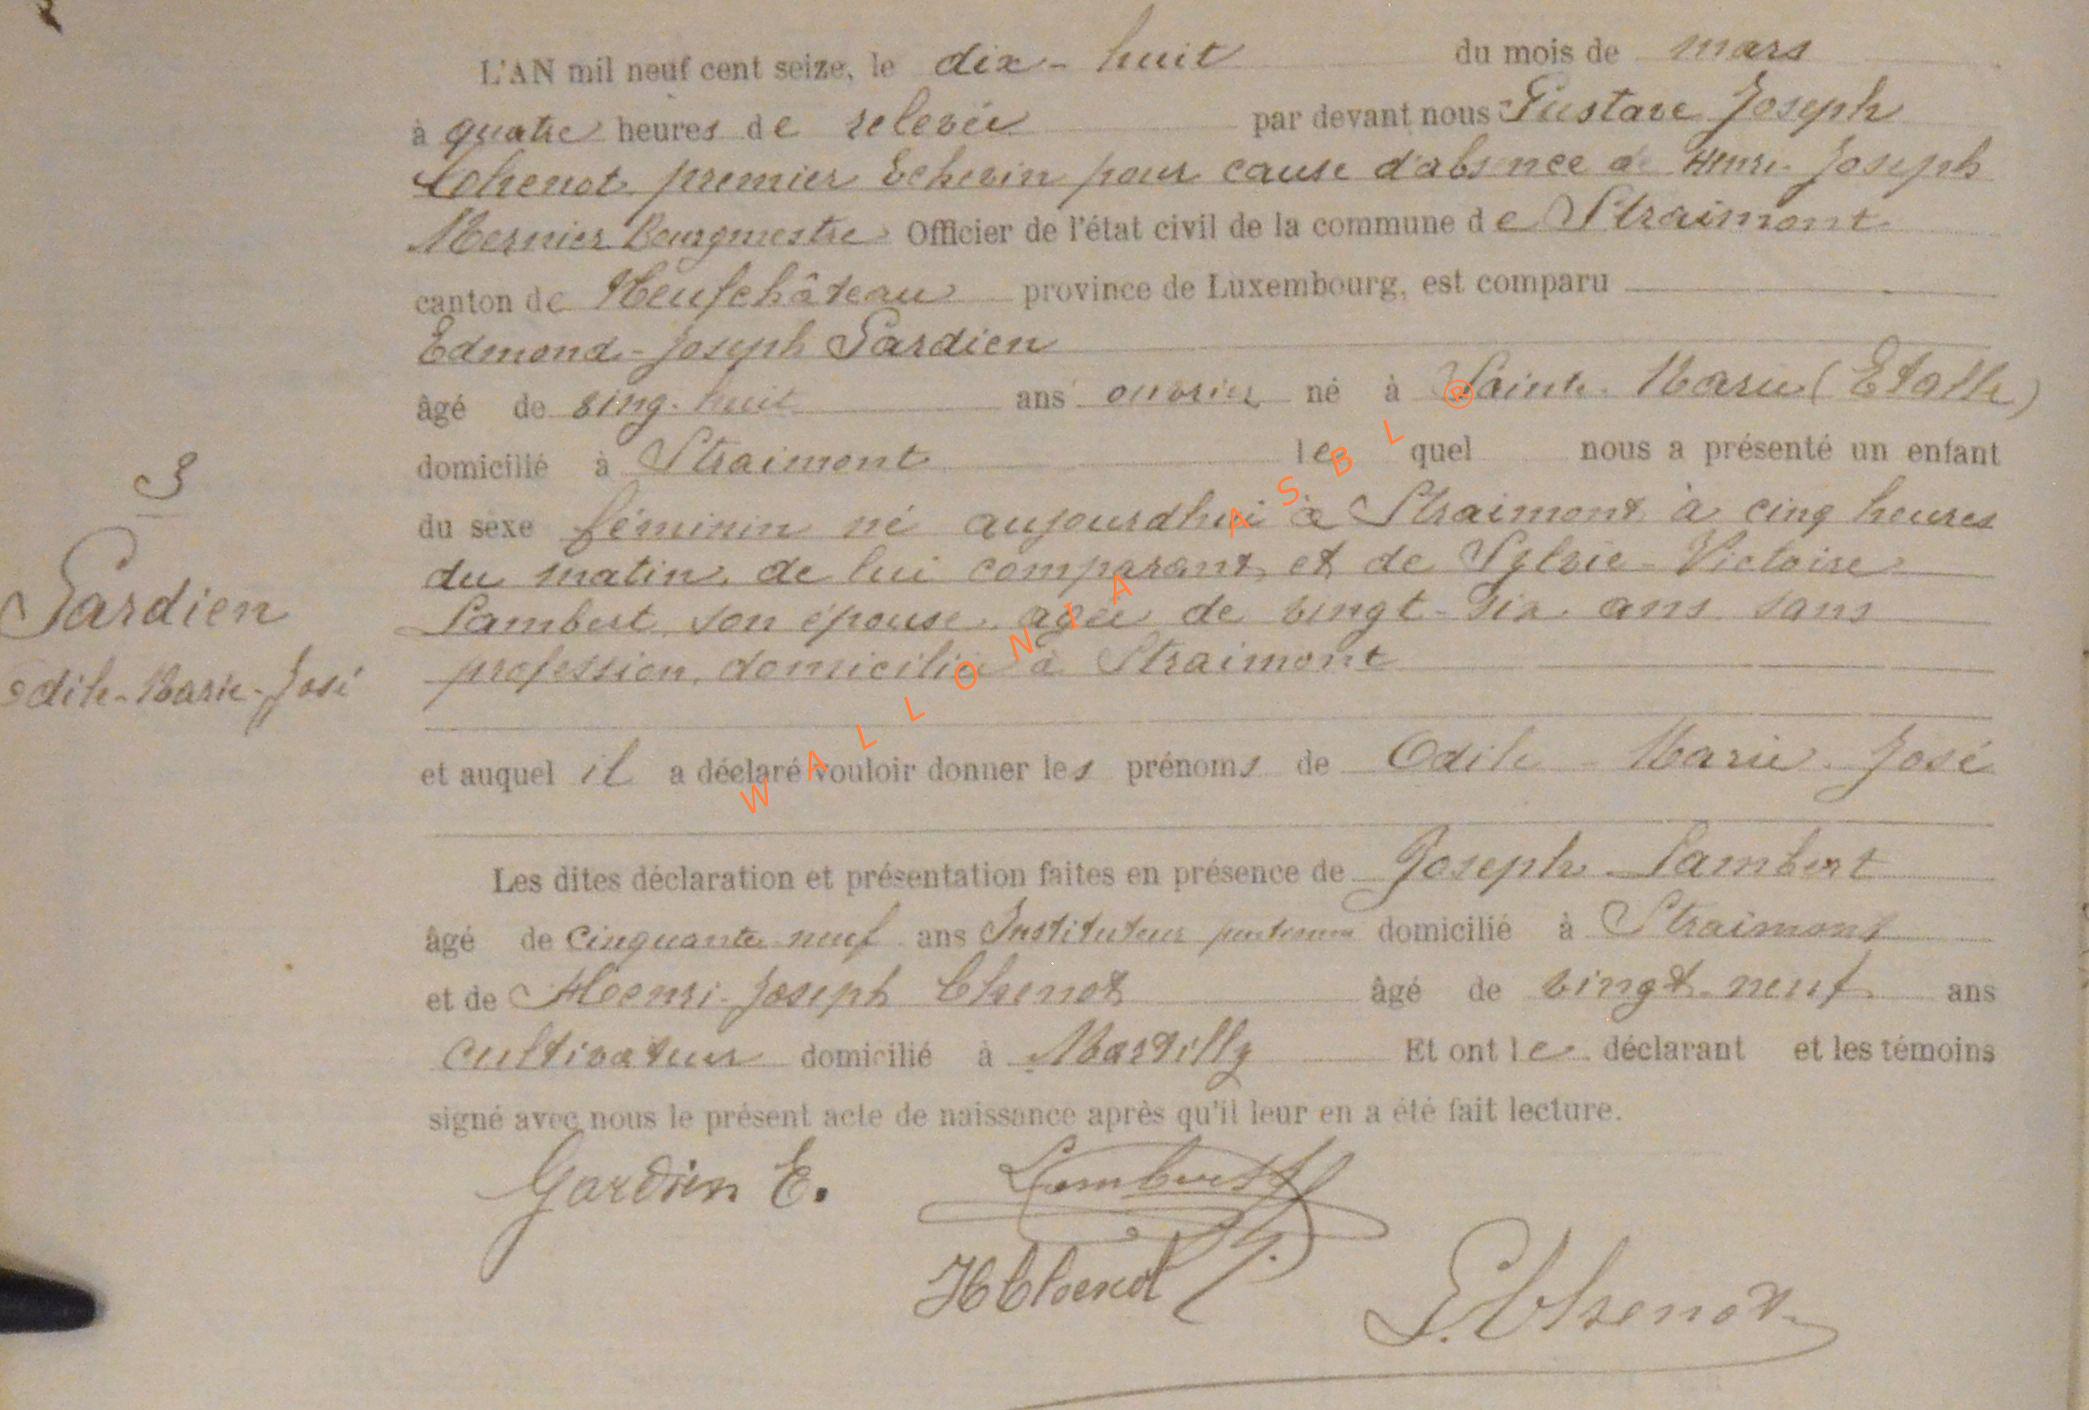 L'AN mil neuf cent seize, le dix-huit du mois de mars
à quatre heures de relevée par devant nous Gustave Joseph
Chenot premier Echevin pour cause d'absence de Henri-Joseph
Mernier Bourgmestre Officier de l'état civil de la commune de Straimont
canton de Neufchâteau province de Luxembourg, est comparu
Edmond-Joseph Gardien
âgé de ving-huit ans ouvrier né à Sainte-Marie (Etalle)
domicilié à Straimont lequel nous a présenté un enfant
3
du sexe féminin né aujourdhui à Straimont à cinq heures
du matin, de lui comparant et de Sylvie-Victoire
Gardien
Lambert son épouse, agée de vingt-six ans sans
profession, domiciliée à Straimont
Odile-Marie-José
et auquel il a déclaré vouloir donner les prénoms de Odile-Marie-José
Les dites déclaration et présentation faites en présence de Joseph Lambert
âgé de cinquante neuf ans Instituteur domicilié à Straimont
et de Henri-Joseph Chenot âgé de vingt-neuf ans
cultivateur domicilié à Martilly Et ont le déclarant et les témoins
signé avec nous le présent acte de naissance après qu'il leur en a été fait lecture.
Gardien E. Lambert J.
H Chenot G. Chenot
WALLONIA ASBL ®